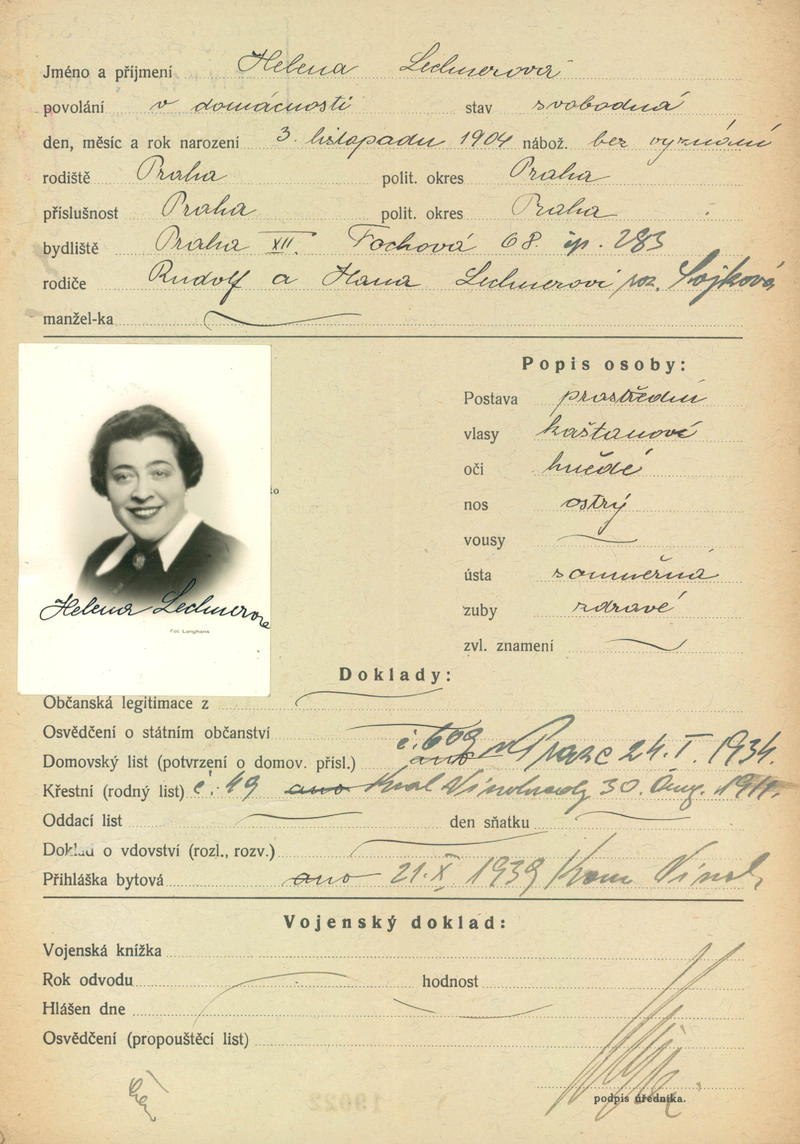 Jméno a příjmení Helena Lechnerová
povolání v domácnosti stav svobodná
den, měsíc a rok narození 3. listopadu 1904 nábož. bez vyznání
rodiště Praha polit. okres Praha
příslušnost Praha polit. okres Praha
bydliště Praha XII. Fochová 68. čp. 283
rodiče Rudolf a Hana Lechnerovi roz. Sojková
manžel-ka
Popis osoby:
Postava prostřední
vlasy kaštanové
oči hnědé
nos ostrý
vousy
ústa souměrná
zuby zdravé
zvl. znamení
Helena Lechnerova
Fot. Langhans
Doklady:
Občanská legitimace z
Osvědčení o státním občanství
Domovský list (potvrzení o domov. přísl.) ano č. 609 v Praze 24. I. 1934.
Křestní (rodný list) č. 49 ano Král Vinohrady 30. Aug. 1911.
Oddací list den sňatku
Doklad o vdovství (rozl., rozv.)
Přihláška bytová ano 21. X. 1939 Kom Vinoh
Vojenský doklad:
Vojenská knížka
Rok odvodu hodnost
Hlášen dne
Osvědčení (propouštěcí list)
podpis úředníka.
19022